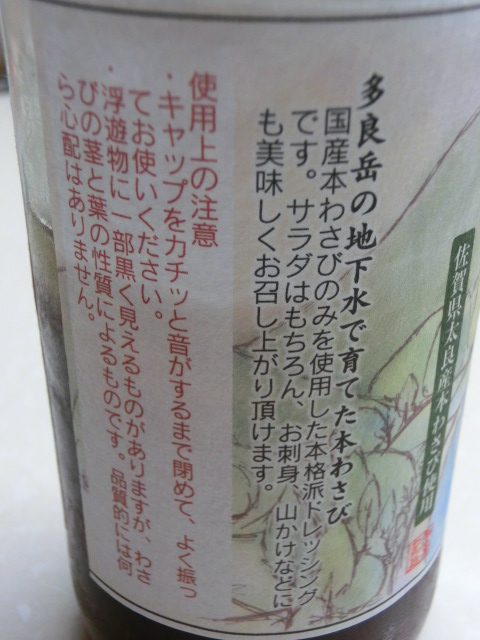 佐賀県太良産本わさび使用
多良岳の地下水で育てた本わさび
国産本わさびのみを使用した本格派ドレッシング
です。サラダはもちろん、お刺身、山かけなどに
も美味しくお召し上がり頂けます。
使用上の注意
・キャップをカチッと音がするまで閉めて、よく振っ
てお使いください。
・浮遊物に一部黒く見えるものがありますが、わさ
びの茎と葉の性質によるものです。品質的には何
ら心配はありません。